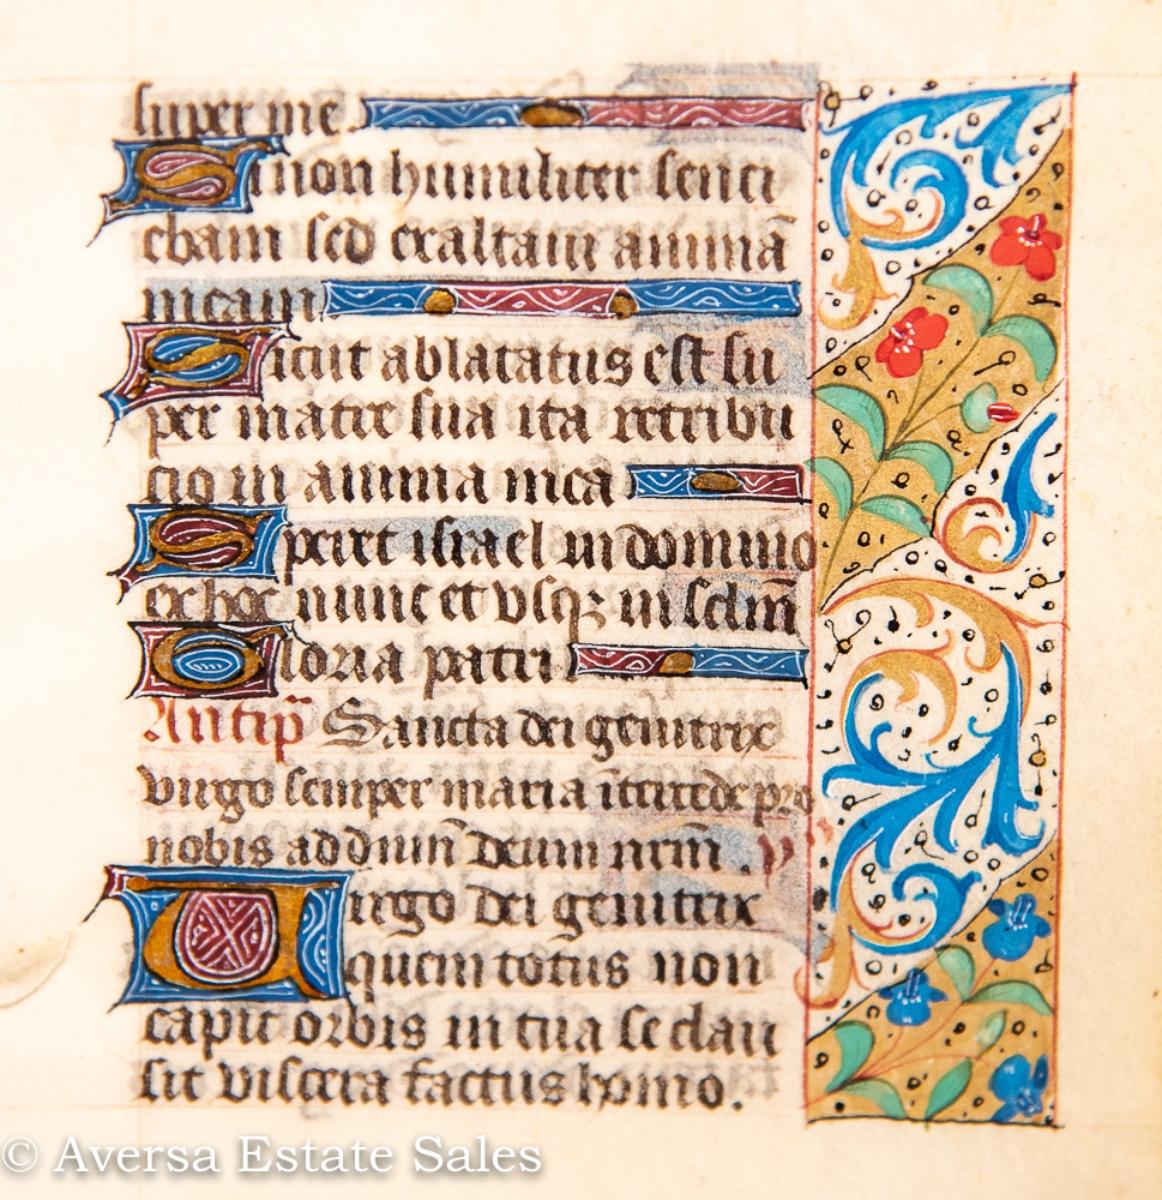 super me
Si non humiliter senci
ebam sed exaltaui animā
meam
Sicut ablatatus est su
per matre sua ita retribu
cio in anima mea
Speret israel in domino
ex hoc nunc et vsqȝ in sclm̄
Gloria patri
Antip̄ Sancta dei genitrix
virgo semper maria īttercede pro
nobis ad dnm̄ deum nrm̄. v
Uirgo dei genitrix
quem totus non
capit orbis in tua se clau
sit viscera factus homo.
© Aversa Estate Sales